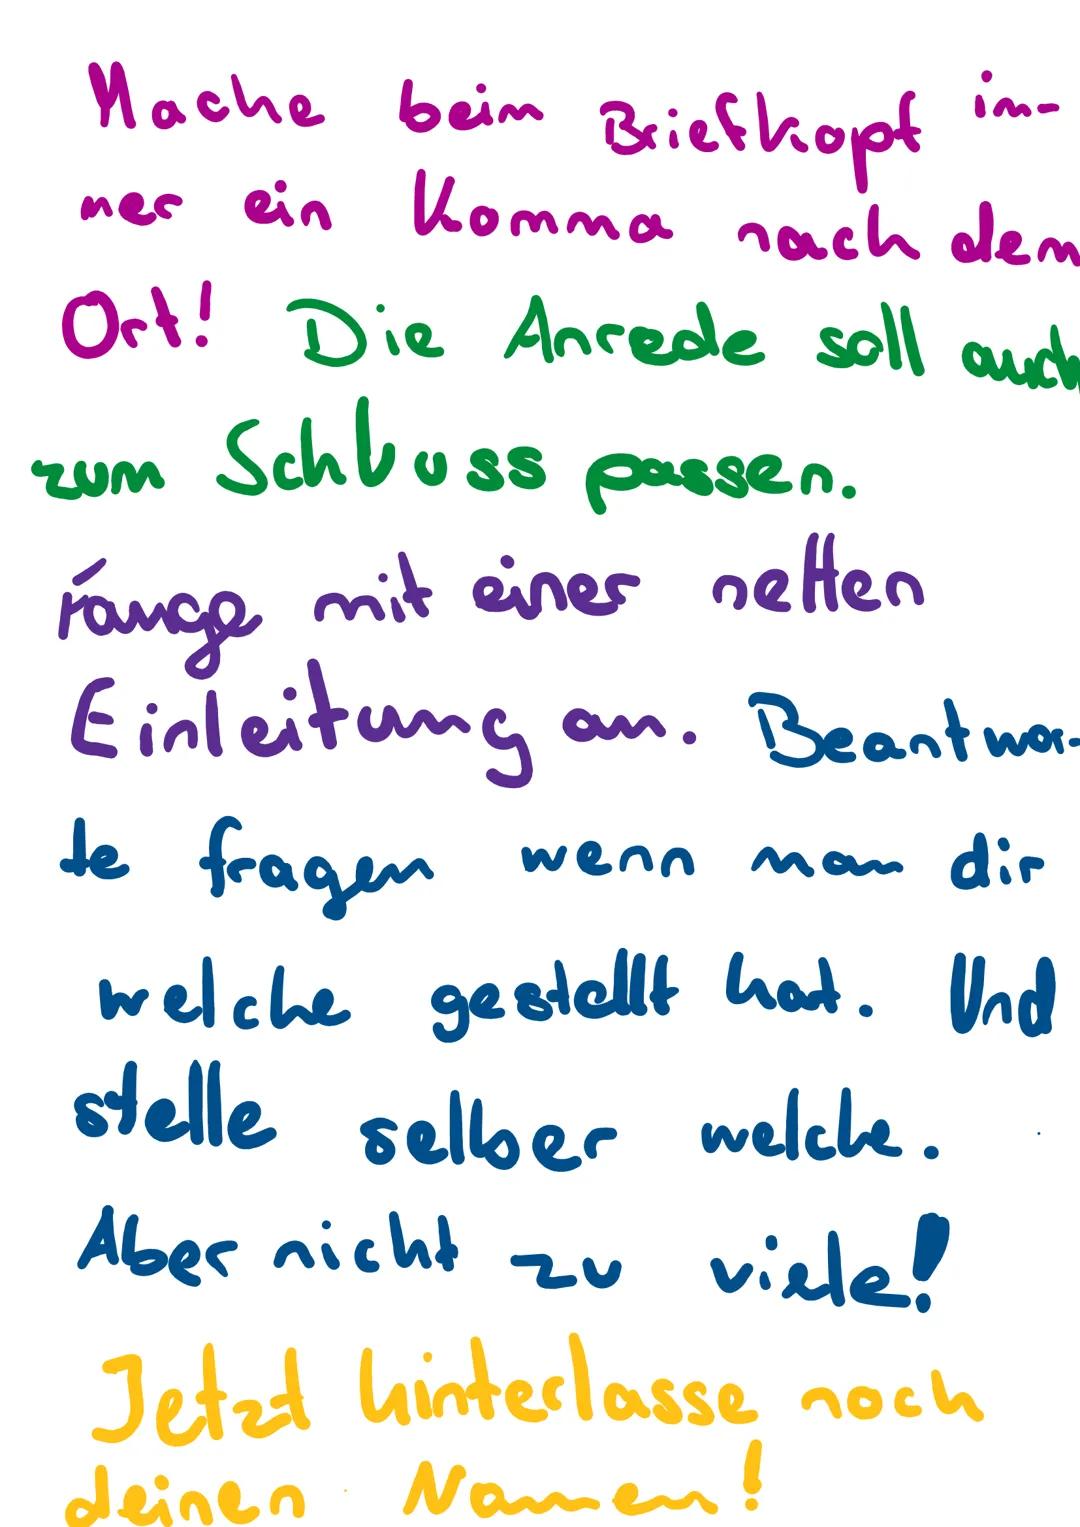 Mache beim Briefkopf im-
mer ein Komma nach dem
Ort! Die Anrede soll auch
zum Schluss passen.
Fange mit einer netten
Einleitung an. Beantwor-
te fragen wenn man dir
welche gestellt hat. Und
stelle selber welche.
Aber nicht zu viele!
Jetzt hinterlasse noch
deinen Namen!